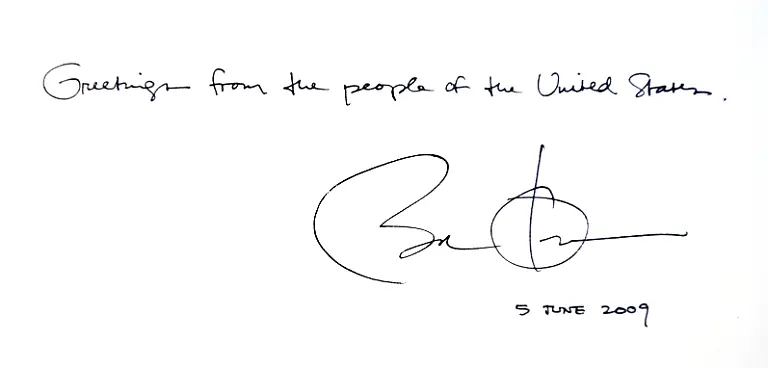 Greetings from the people of the United States.
5 JUNE 2009